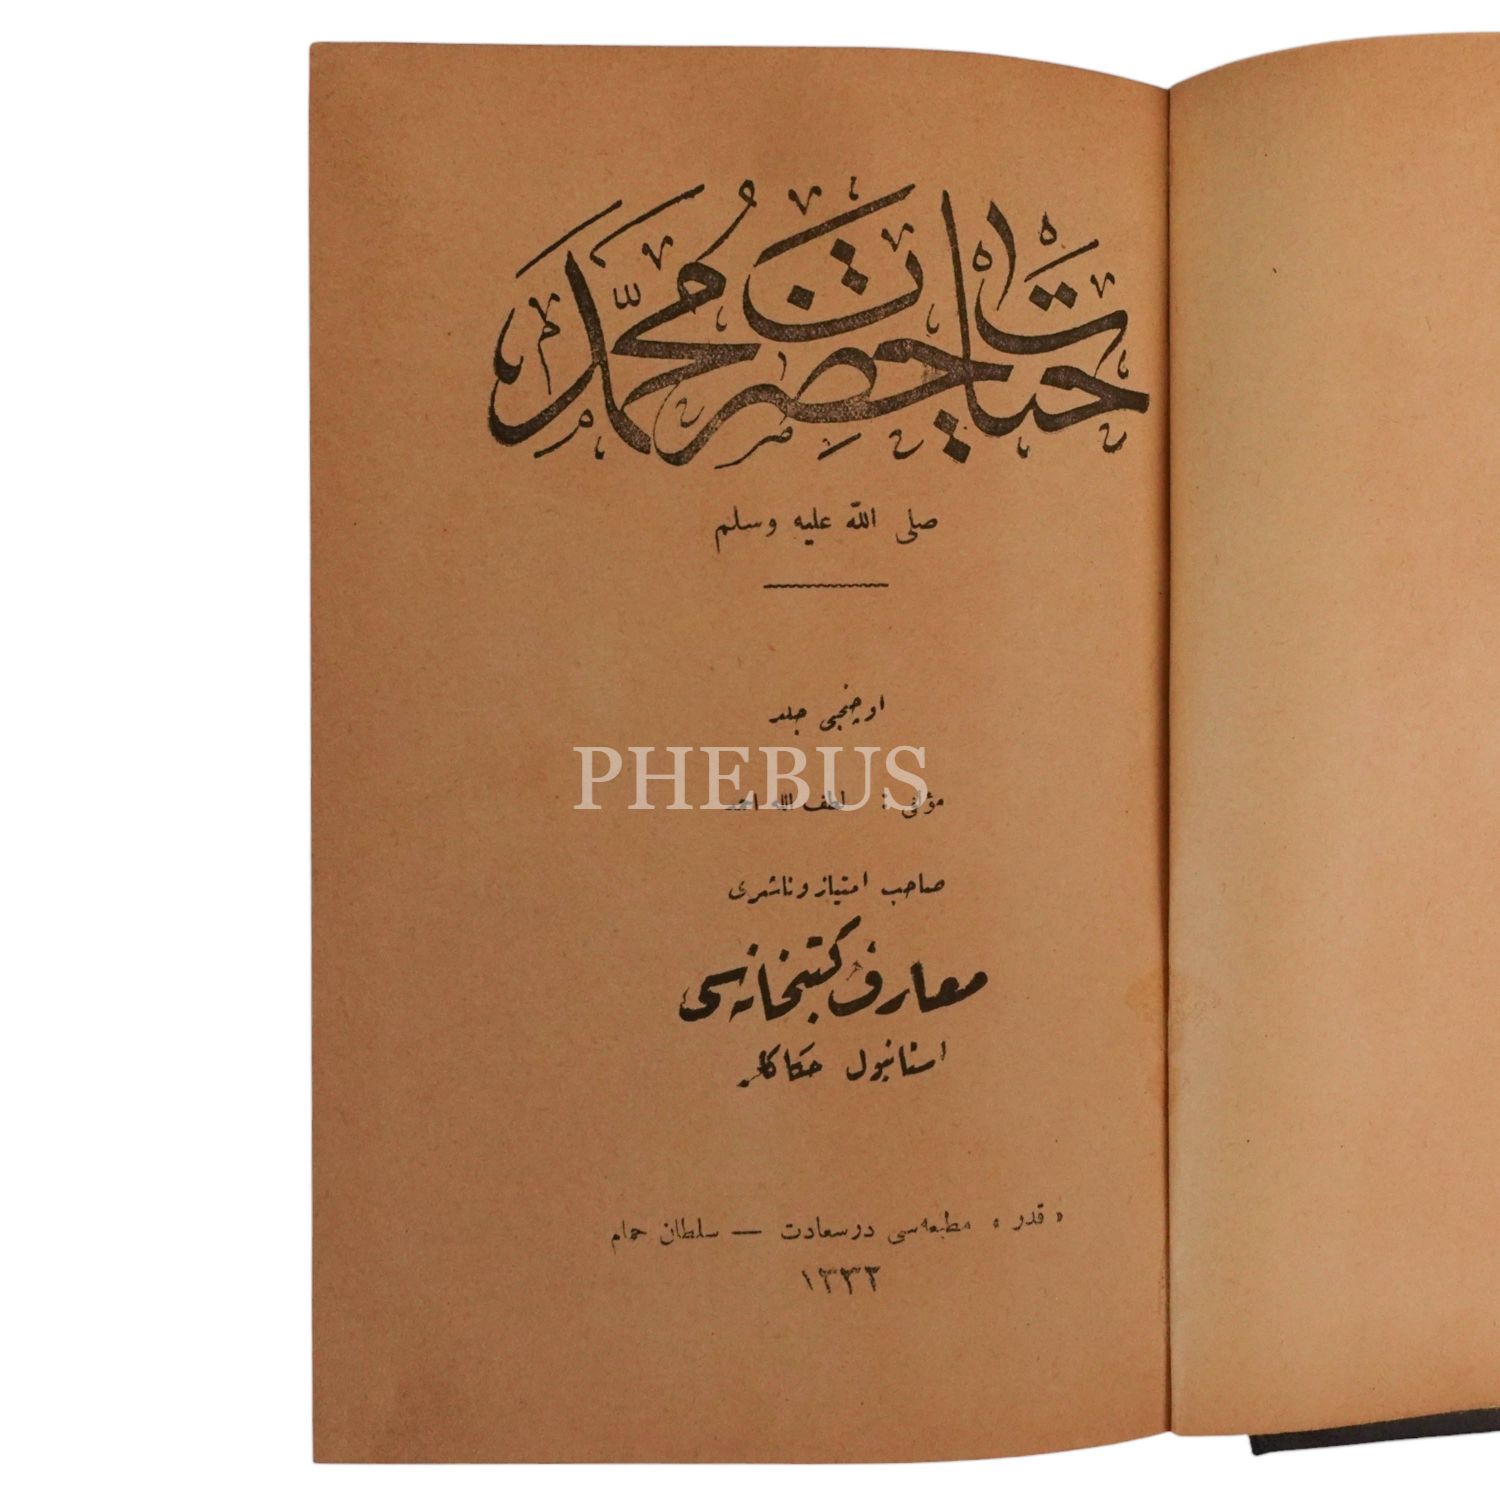 حیات حضرت محمد
صلى الله عليه وسلم
اوچنجی جلد
PHEBUS
مؤلفی : لطف الله احمد
صاحب امتیاز و ناشری
معارف کتبخانه‌سی
استانبول حکاکلر
« قدر » مطبعه‌سی درسعادت — سلطان حمام
١٣٣٣